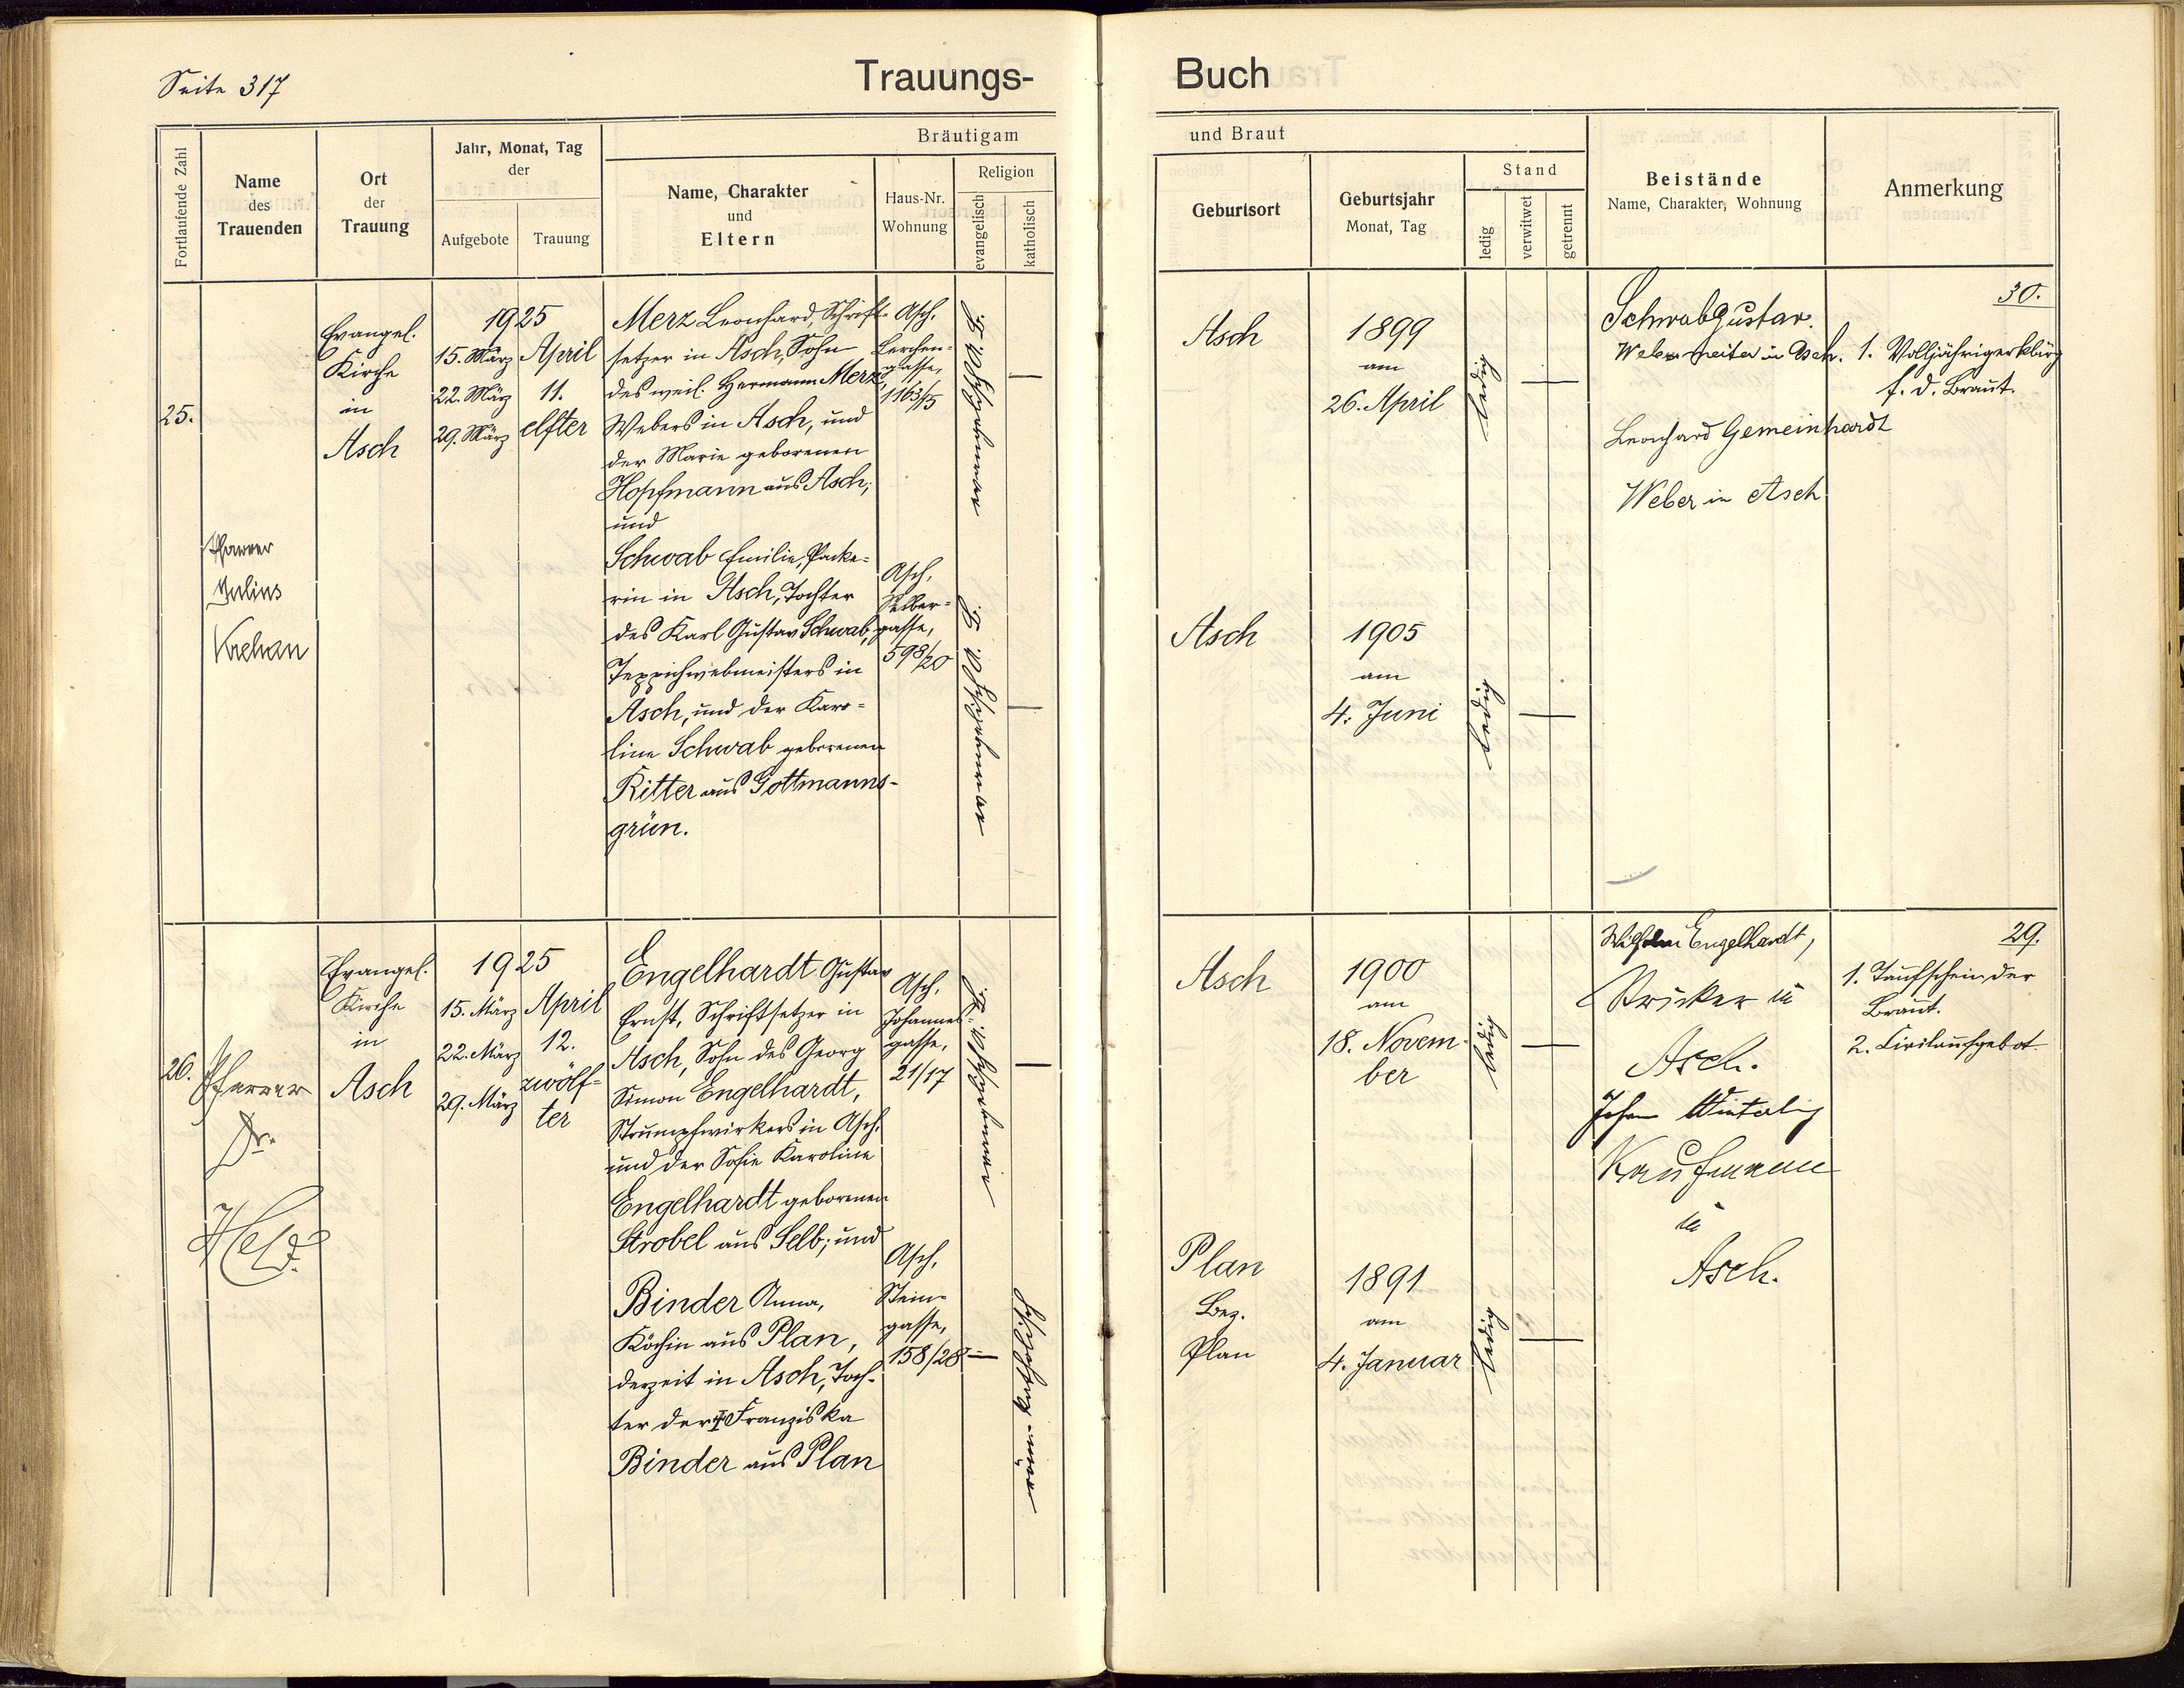 Seite 317
Trauungs-
Buch
Fortlaufende Zahl
Name
des
Trauenden
Ort
der
Trauung
Jahr, Monat, Tag
der
Aufgebote
Trauung
Bräutigam
Name, Charakter
und
Eltern
Haus-Nr.
Wohnung
Religion
evangelisch
katholisch
und Braut
Geburtsort
Geburtsjahr
Monat, Tag
Stand
ledig
verwitwet
getrennt
Beistände
Name, Charakter, Wohnung
Anmerkung
25.
Pfarrer
Julius
Krehan
Evangel.
Kirche
in
Asch
1925
15. März
22. März
29. März
April
11.
elfter
Merz Leonhard, Schrift-
setzer in Asch, Sohn
des weil. Hermann Merz,
Webers in Asch, und
der Marie geborenen
Hopfmann aus Asch;
und
Schwab Emilie, Packe-
rin in Asch, Tochter
des Karl Gustav Schwab,
Teppichwebmeisters in
Asch, und der Karo-
line Schwab geborenen
Ritter aus Gottmanns-
grün.
Asch,
Lerchen-
gasse,
1163/5
Asch,
Selber-
gasse,
598/20
Asch
1899
am
26. April
ledig
Asch
1905
am
4. Juni
ledig
Schwab Gustav.
Webmeister in Asch.
Leonhard Gemeinhardt
Weber in Asch
30.
1. Volljährigerklärg
f. d. Braut.
26.
Pfarrer
Dr.
Held
Evangel.
Kirche
in
Asch
1925
15. März
22. März
29. März
April
12.
zwölf-
ter
Engelhardt Gustav
Ernst, Schriftsetzer in
Asch, Sohn des Georg
Simon Engelhardt,
Strumpfwirkers in Asch,
und der Sofie Karoline
Engelhardt geborenen
Strobel aus Selb; und
Binder Anna,
Köchin aus Plan,
derzeit in Asch, Toch-
ter der Franziska
Binder aus Plan
Asch,
Johannes-
gasse,
21/17
Asch,
Stein-
gasse,
158/28
röm.-katholisch
Asch
1900
am
18. Novem-
ber
ledig
Plan
Bez.
Plan
1891
am
4. Januar
ledig
Wilhelm Engelhardt,
in
Asch.
Johann Winterling
Kaufmann
in
Asch.
29.
1. Taufschein der
Braut.
2. Civilaufgebot